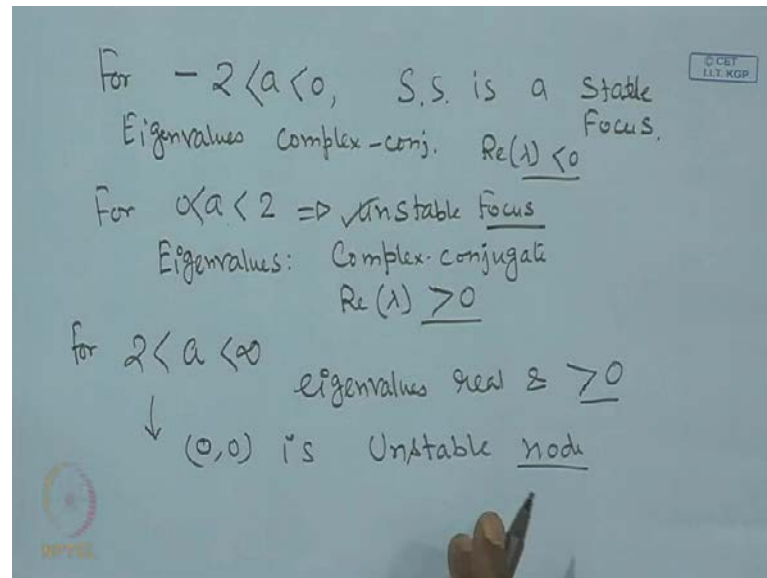 For -2<a<0, S.S. is a stable
Focus.
Eigenvalues complex-conj. Re(λ) <0
© CET
I.I.T. KGP
For 0<a<2 => Unstable Focus
Eigenvalues: Complex-conjugate
Re(λ) >0
for 2<a<∞
eigenvalues real & >0
↓ (0,0) is Unstable node
NPTEL